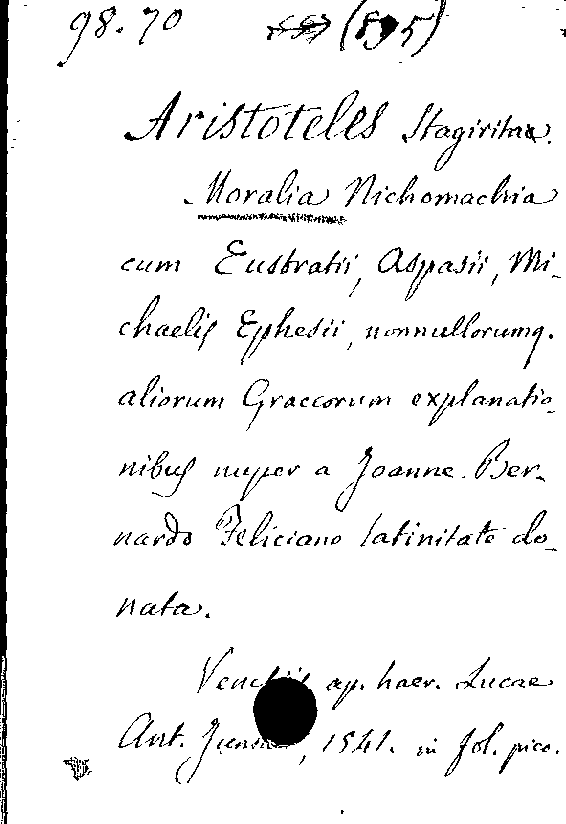 98.70 (895)
Aristoteles Stagiritae.
Moralia Nichomachia
cum Eustratii, Aspasii, Mi-
chaelis Ephesii, nonnullorumq.
aliorum Graecorum explanatio-
nibus nuper a Joanne Ber-
nardo Feliciano latinitate do-
nata.
Venetiis ap. haer. Lucae
Ant. Juntae, 1541. in fol. pico.